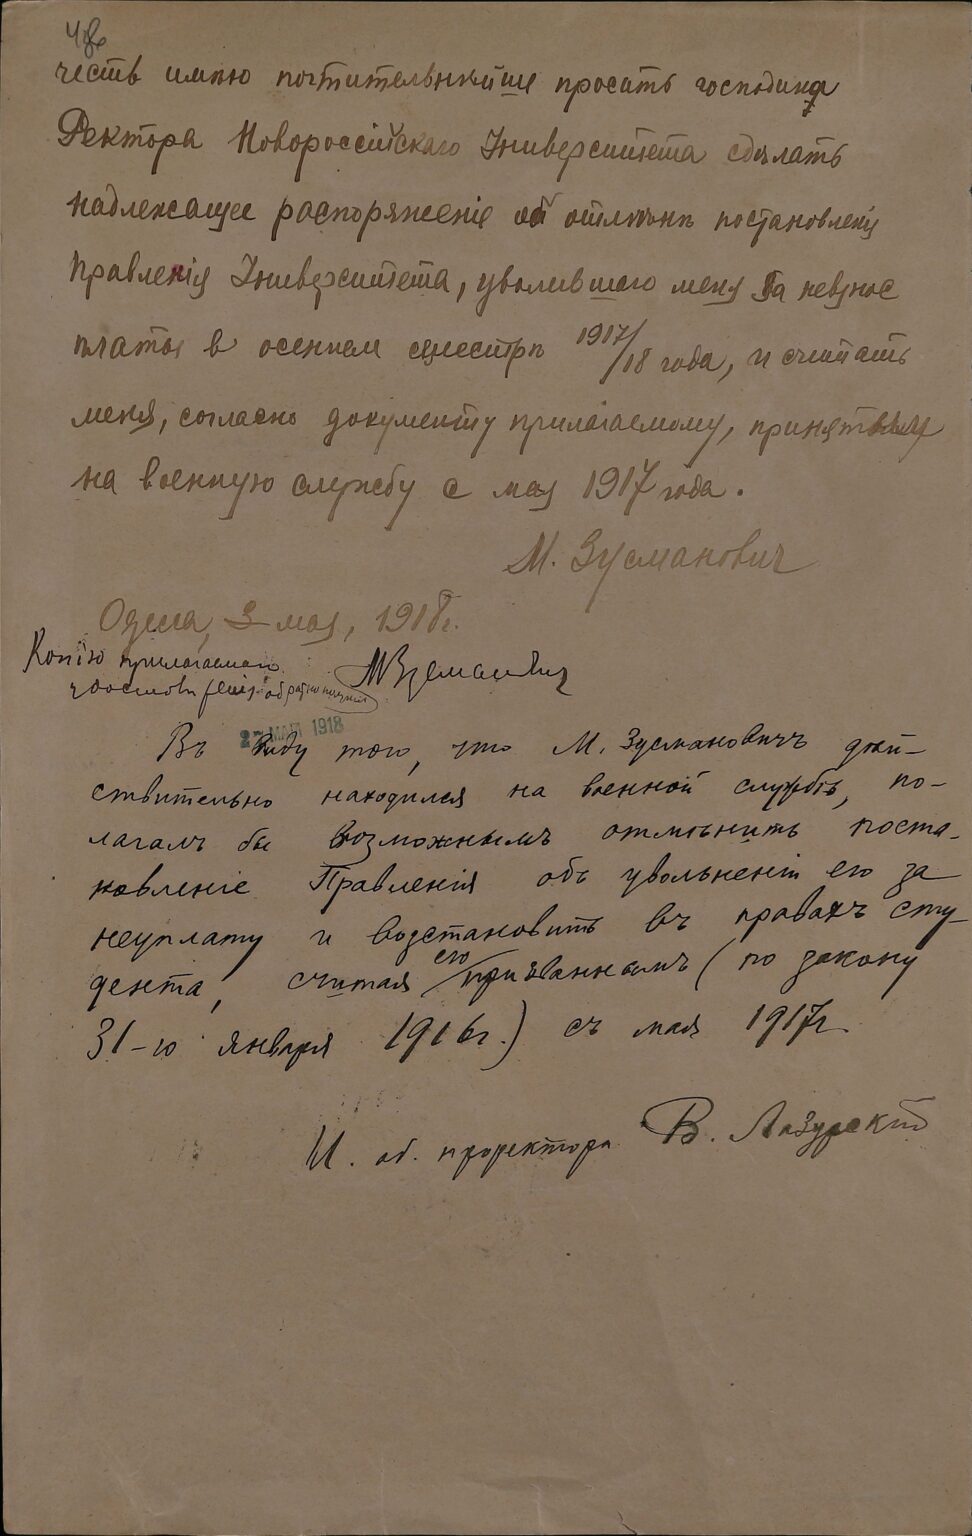 честь имѣю почтительнѣйше просить господина
Ректора Новороссійскаго Университета сдѣлать
надлежащее распоряженіе об отмѣнѣ постановленія
Правленія Университета, уволившаго меня за невзнос
платы в осеннем семестрѣ 1917/18 года, и считать
меня, согласно документу прилагаемому, принятым
на военную службу с мая 1917 года.
М. Зусманович
Одесса, 3 мая, 1918 г.
Копію прилагаемаго
удостовѣренія обратно получил
МЗусманович
27 МАЯ 1918
Въ виду того, что М. Зусмановичъ дѣй-
ствительно находился на военной службѣ, по-
лагалъ бы возможнымъ отмѣнить поста-
новленіе Правленія объ увольненіи его за
неуплату и возстановить въ правахъ сту-
дента, считая его призваннымъ (по закону
31-го января 1916 г.) съ мая 1917 г.
И. об. проректора В. Лазурский